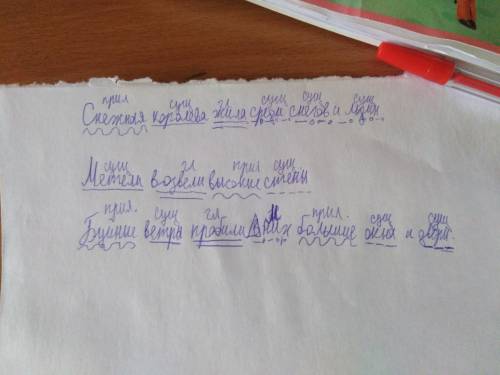 прил сущ гл сущ сущ сущ
Снежная королева жила среди снегов и льдин
сущ гл прил сущ
Метели возвели высокие стены
прил. сущ гл М прил. сущ сущ
Буйные ветры пробили в них большие окна и двери.